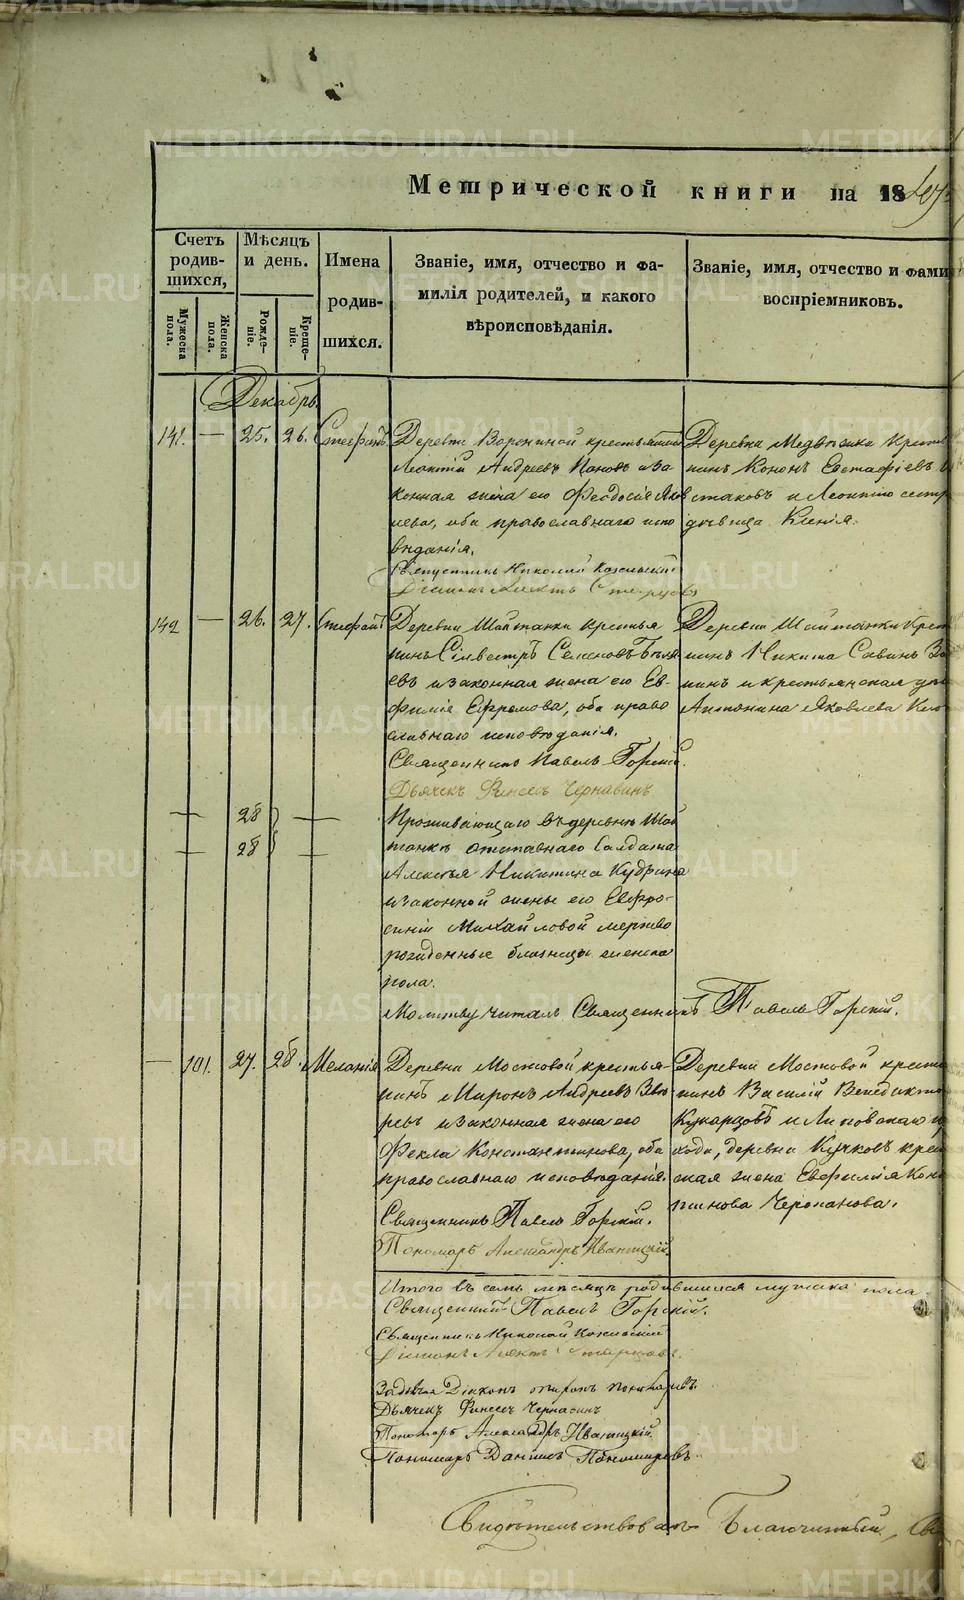 Метрической книги на 18
Счетъ родив-шихся,
Мужеска пола.
Женска пола.
Мѣсяцъ и день.
Рожде-ніе.
Креще-ніе.
Имена родив-шихся.
Званіе, имя, отчество и фа-
милія родителей, и какого
вѣроисповѣданія.
Званіе, имя, отчество и фами
воспріемниковъ.
Декабрь.
141. — 25. 26. Стефанъ
Деревни Ворониной крестьянинъ
Леонтій Андреевъ Пановъ и за
конная жена его Феодосія Яков
лева, оба православнаго испо
вѣданія.
Николай
Діаконъ
Деревни крестья
нинъ Кононъ Евстафіевъ
и Леонтію сестра
дѣвица Ксенія.
142 — 26. 27. Стефанъ
Деревни Шайтанки крестья
нинъ Сілвестръ Семеновъ Бѣля
евъ и законная жена его Ев-
фимія Ефремова, оба право
славнаго исповѣданія.
Священникъ Павелъ Горскій.
Дьячекъ Финеесъ Чернавинъ
Деревни Шайтанки крест
нинъ Никита Савинъ
нинъ и крестьянская
Антонина Яковлева
— 28 —
— 28 —
Проживающаго въ деревнѣ Шай
танкѣ отставнаго Солдата
Алексѣя Никитина Кудрина
и законной жены его Евфро-
синіи Михайловой мертво
рожденные близнецы женска
пола.
Молитву читалъ Священникъ Павелъ Горскій.
— 101. 27. 28. Меланія
Деревни Мостовой крестья-
нинъ Миронъ Андреевъ Звѣ
ревъ и законная жена его
Фекла Константинова, оба
православнаго исповѣданія.
Священникъ Павелъ Горскій.
Пономарь Александръ Иваницкій
Деревни Мостовой крестья
нинъ Василій Венедикто
Кукарцовъ и Липовскаго п
хода, деревни Кучковъ крес
ская жена Евфимія Конс
тинова Черепанова.
Итого въ семъ мѣсяцѣ родившихся мужска пола
Священникъ Павелъ Горскій.
Священникъ Николай
Діаконъ
Дьячекъ Финеесъ Чернавинъ
Пономарь Александръ Иваницкій
Пономарь Даніилъ Пономаревъ.
Свидѣтельствовалъ Благочинный,
METRIKI.GASO-URAL.RU